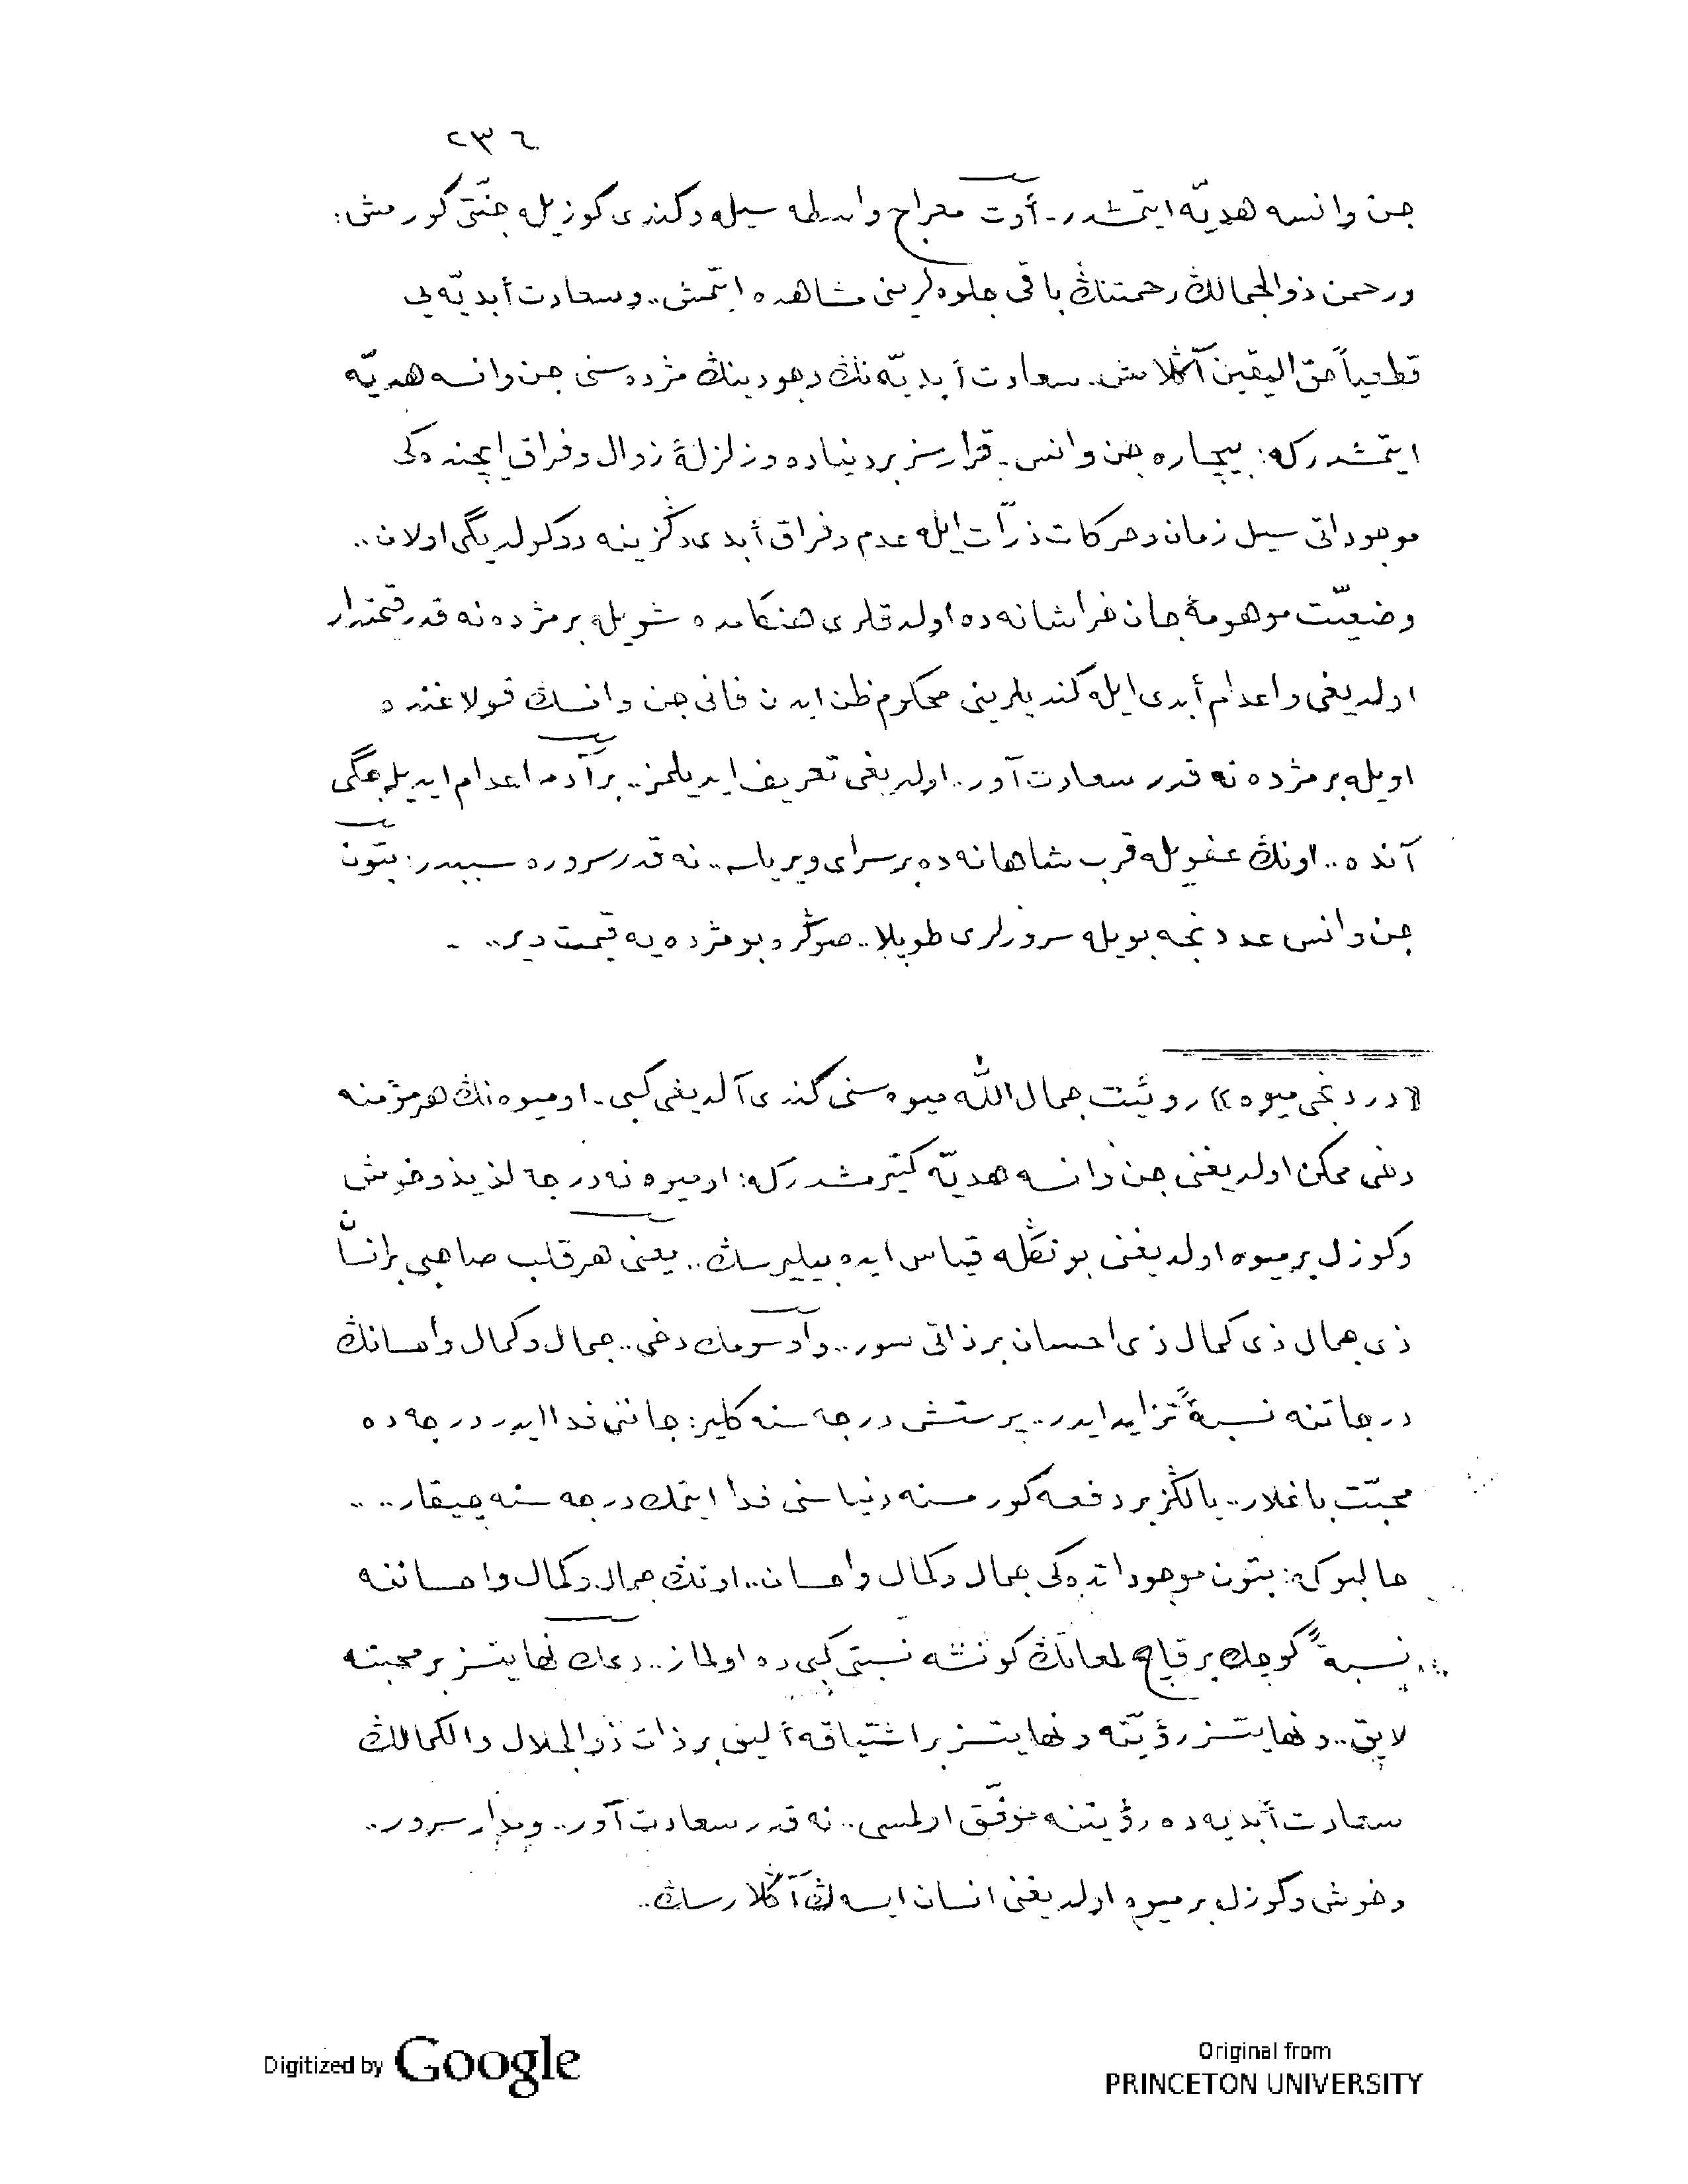 ٢٣٦
جن وانسه هديّه ايتمشدر. أوت معراج واسطه سيله و كندى كوزيله جنّتى كورمش:
ورحمن ذوالجمالڭ رحمتنڭ باقى جلوه لرينى مشاهده ايتمش.. و سعادت أبديّه يى
قطعياً حق اليقين آڭلامش. سعادت أبديّه نڭ وجودينڭ مژده سنى جن وانسه هديّه
ايتمشدركه: بيچاره جن وانس. قرارسز بردنياده و زلزلۀ زوال وفراق ايچنده كى
موجوداتى سيل زمان و حركات ذرّات ايله عدم و فراق أبدى دڭزينه دوكولديگى اولان..
وضعيّت موهومۀ جان خراشانه ده اولدقلرى هنكامده شويله بر مژده نه قدر قيمتدار
اولديغى و اعدام أبدى ايله كنديلرينى محكوم ظن ايدن فانى جن وانسڭ قولاغنده
اويله بر مژده نه قدر سعادت آور.. اولديغى تعريف ايديلمز.. بر آدمه اعدام ايديله جگى
آنده.. اونڭ عفويله قرب شاهانه ده بر سراى ويريلسه.. نه قدر سروره سببدر: بتون
جن وانس عددنجه بويله سرورلرى طوپلا.. صوڭره بو مژده يه قيمت وير..
«دردنجى ميوه» روئيت جمال الله ميوه سنى كندى آلديغى كبى. او ميوه نڭ هر مؤمنه
دخى ممكن اولديغنى جن وانسه هديّه كتيرمشدركه: او ميوه نه درجه لذيذ وخوش
وكوزل بر ميوه اولديغنى بونڭله قياس ايده بيليرسڭ.. يعنى هر قلب صاحبى بر انسان
ذى جمال ذى كمال ذى احسان بر ذاتى سور.. و او سومك دخى.. جمال وكمال واحسانڭ
درجاتنه نسبةً تزايد ايدر.. پرستش درجه سنه كلير: جاننى فدا ايدر درجه ده
محبّت باغلار.. يالڭز بر دفعه كورمسنه دنياسنى فدا ايتمك درجه سنه چيقار....
حالبوكى: بتون موجوداتده كى جمال وكمال واحسان.. اونڭ جمال وكمال واحساننه
نسبةً كوچك بر قاچ لمعاتڭ كونشه نسبتى كبى ده اولماز.. ديمك نهايتسز بر محبته
لايق.. ونهايتسز رؤيته ونهايتسز بر اشتياقه أليق بر ذات ذوالجلال والكمالڭ
سعادت أبديه ده رؤيتنه موفّق اولمسى.. نه قدر سعادت آور.. ومدار سرور..
وخوش وكوزل بر ميوه اولديغنى انسان ايسه ڭ آڭلارسڭ..
Digitized by Google
Original from
PRINCETON UNIVERSITY